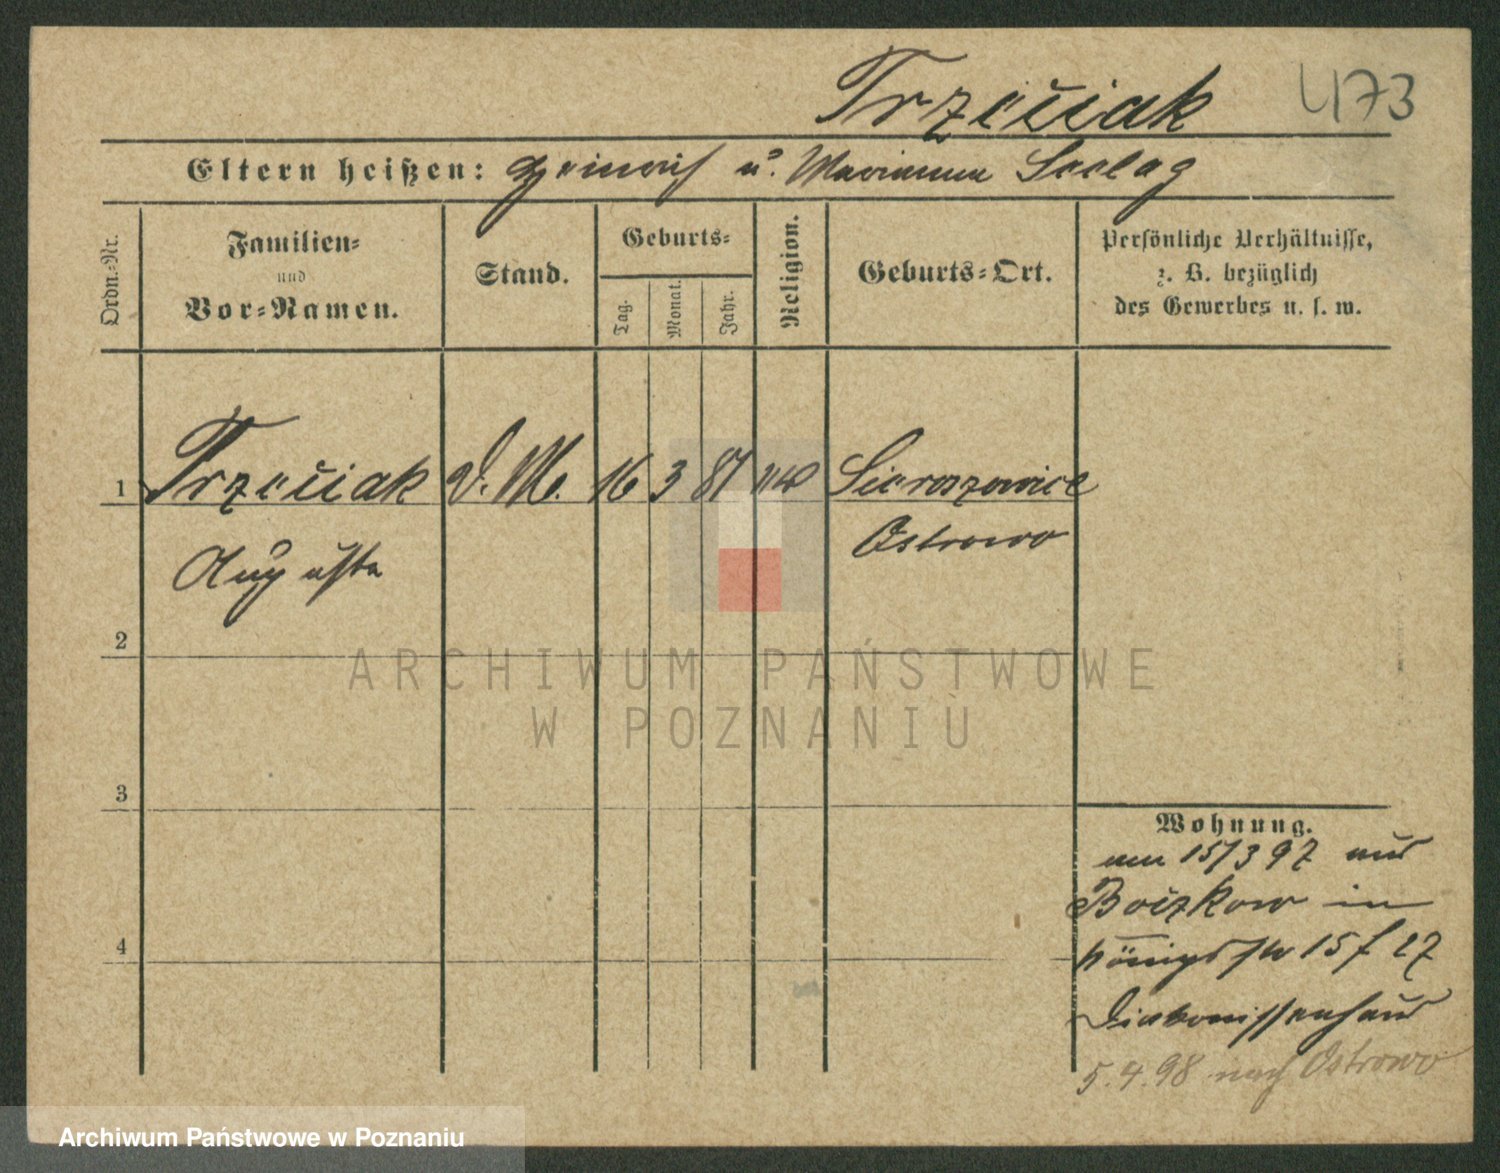 Trzeciak 473
Eltern heißen: Heinrich u. Marianna Seelag
Ordn.-Nr.
Familien-
und
Vor-Namen.
Stand.
Geburts-
Tag.
Monat.
Jahr.
Religion.
Geburts-Ort.
Persönliche Verhältnisse,
z. B. bezüglich
des Gewerbes u. s. w.
1 Trzeciak D. M. 16 3 81 Sieroszewice
Augusta Ostrowo
2
ARCHIWUM PAŃSTWOWE
W POZNANIU
3
Wohnung.
am 15/3 97 aus
Boczkow in
Königsstr 15 f 27
4
Diakonissenhaus
5.4.98 nach Ostrowo
Archiwum Państwowe w Poznaniu